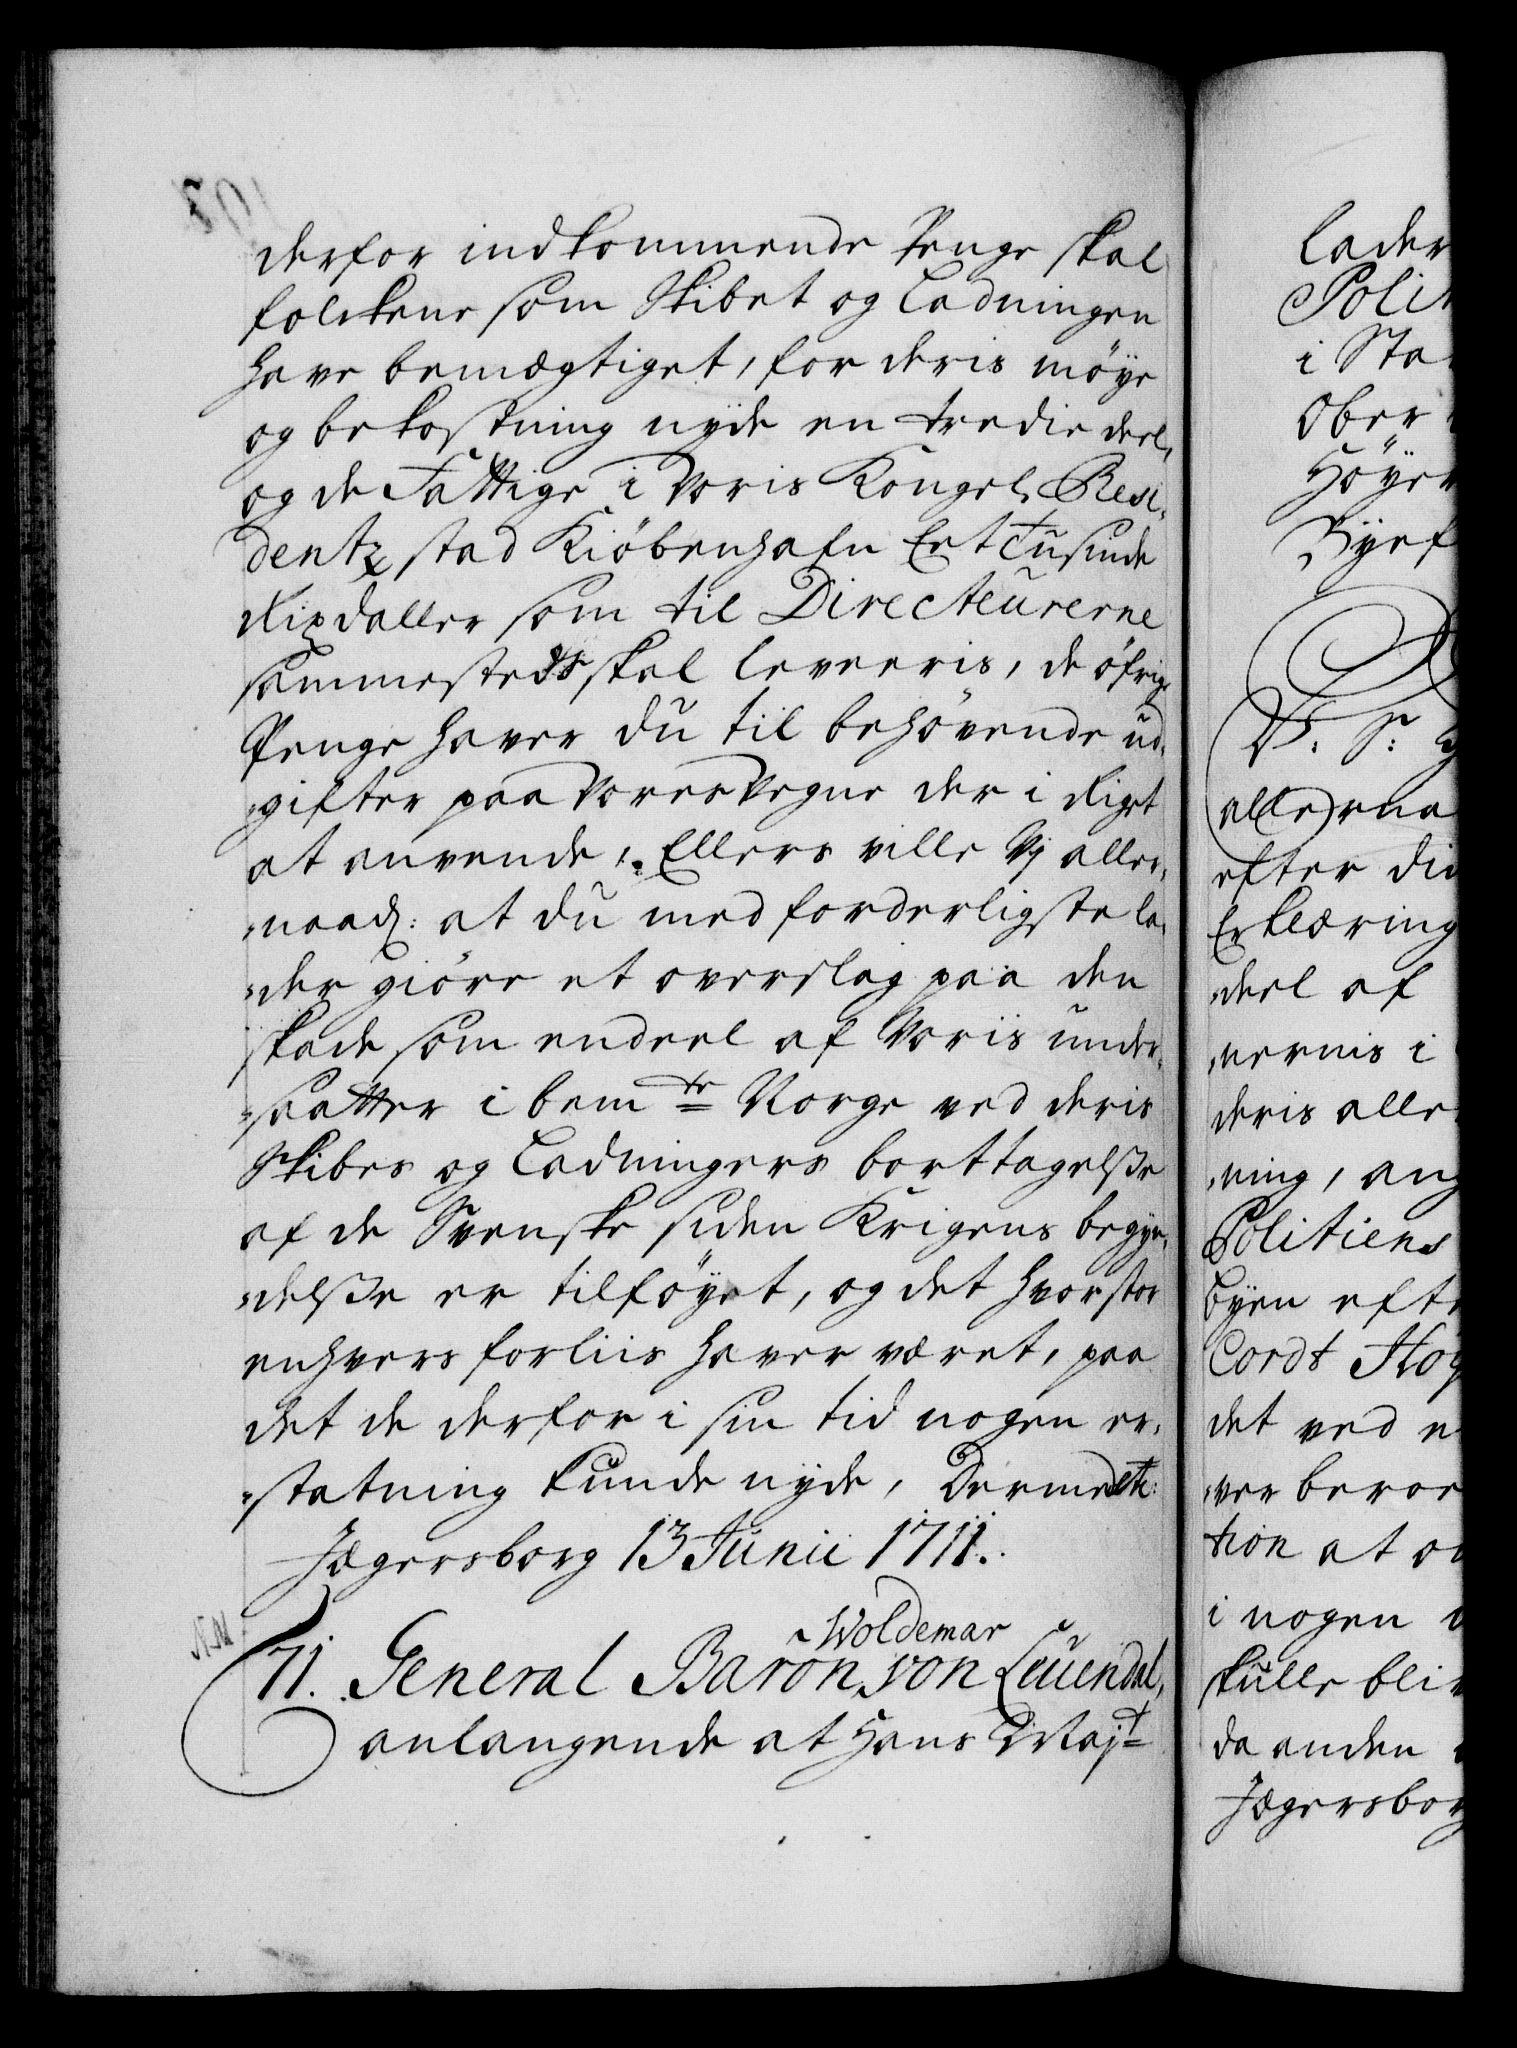 derfor indkommende Penge skal
folckene som Skibet og Ladningen
have bemægtiget, for deris möye
og bekostning nyde en tredie deel,
og de Fattige i Voris Kongel. Resi-
dentz stad Kiöbenhafn Ert Tusinde
Rixdaller som til Directeurerne
sammesteds skal leveeris, de öfrige
Penge haver du til behövende ud-
gifter paa Vores Vegne der i Riget
at anvende, Ellers ville Vj aller-
naad: at du med forderligste la-
der giöre et overslag paa den
skade som endeel af Voris under-
saatter i bemte Norge ved deris
Skibes og Ladningers borttagelsse
af de Svenske siden Krigens begyn-
delsse er tilföyet, og det hvor stor
enhvers forliis haver været, paa
det de derfor i sin tid nogen er-
statning kunde nyde, Dermed etc:
Jægersborg 13 Junii 1711.
Woldemar
71. General Baron von Leuendal,
anlangende at Hans Mayt
lader
Polit
i Sta
Ober
Höye
Byef
V. S.
allerna
efter di
Erklæring
deel af
nernis i
deris alle
ning, ang
Politiens
Byen eft
Cordt Hoy
det ved
ver beroe
tion at
i nogen
skulle bli
da anden
Jægersbor